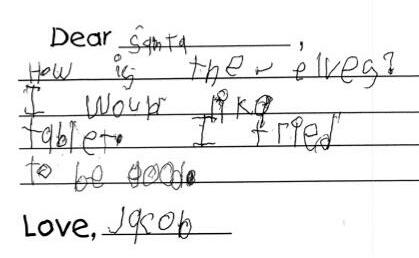 Dear Santa,
How is the elves?
I woup like
tablet. I tried
to be good.
Love, Jacob